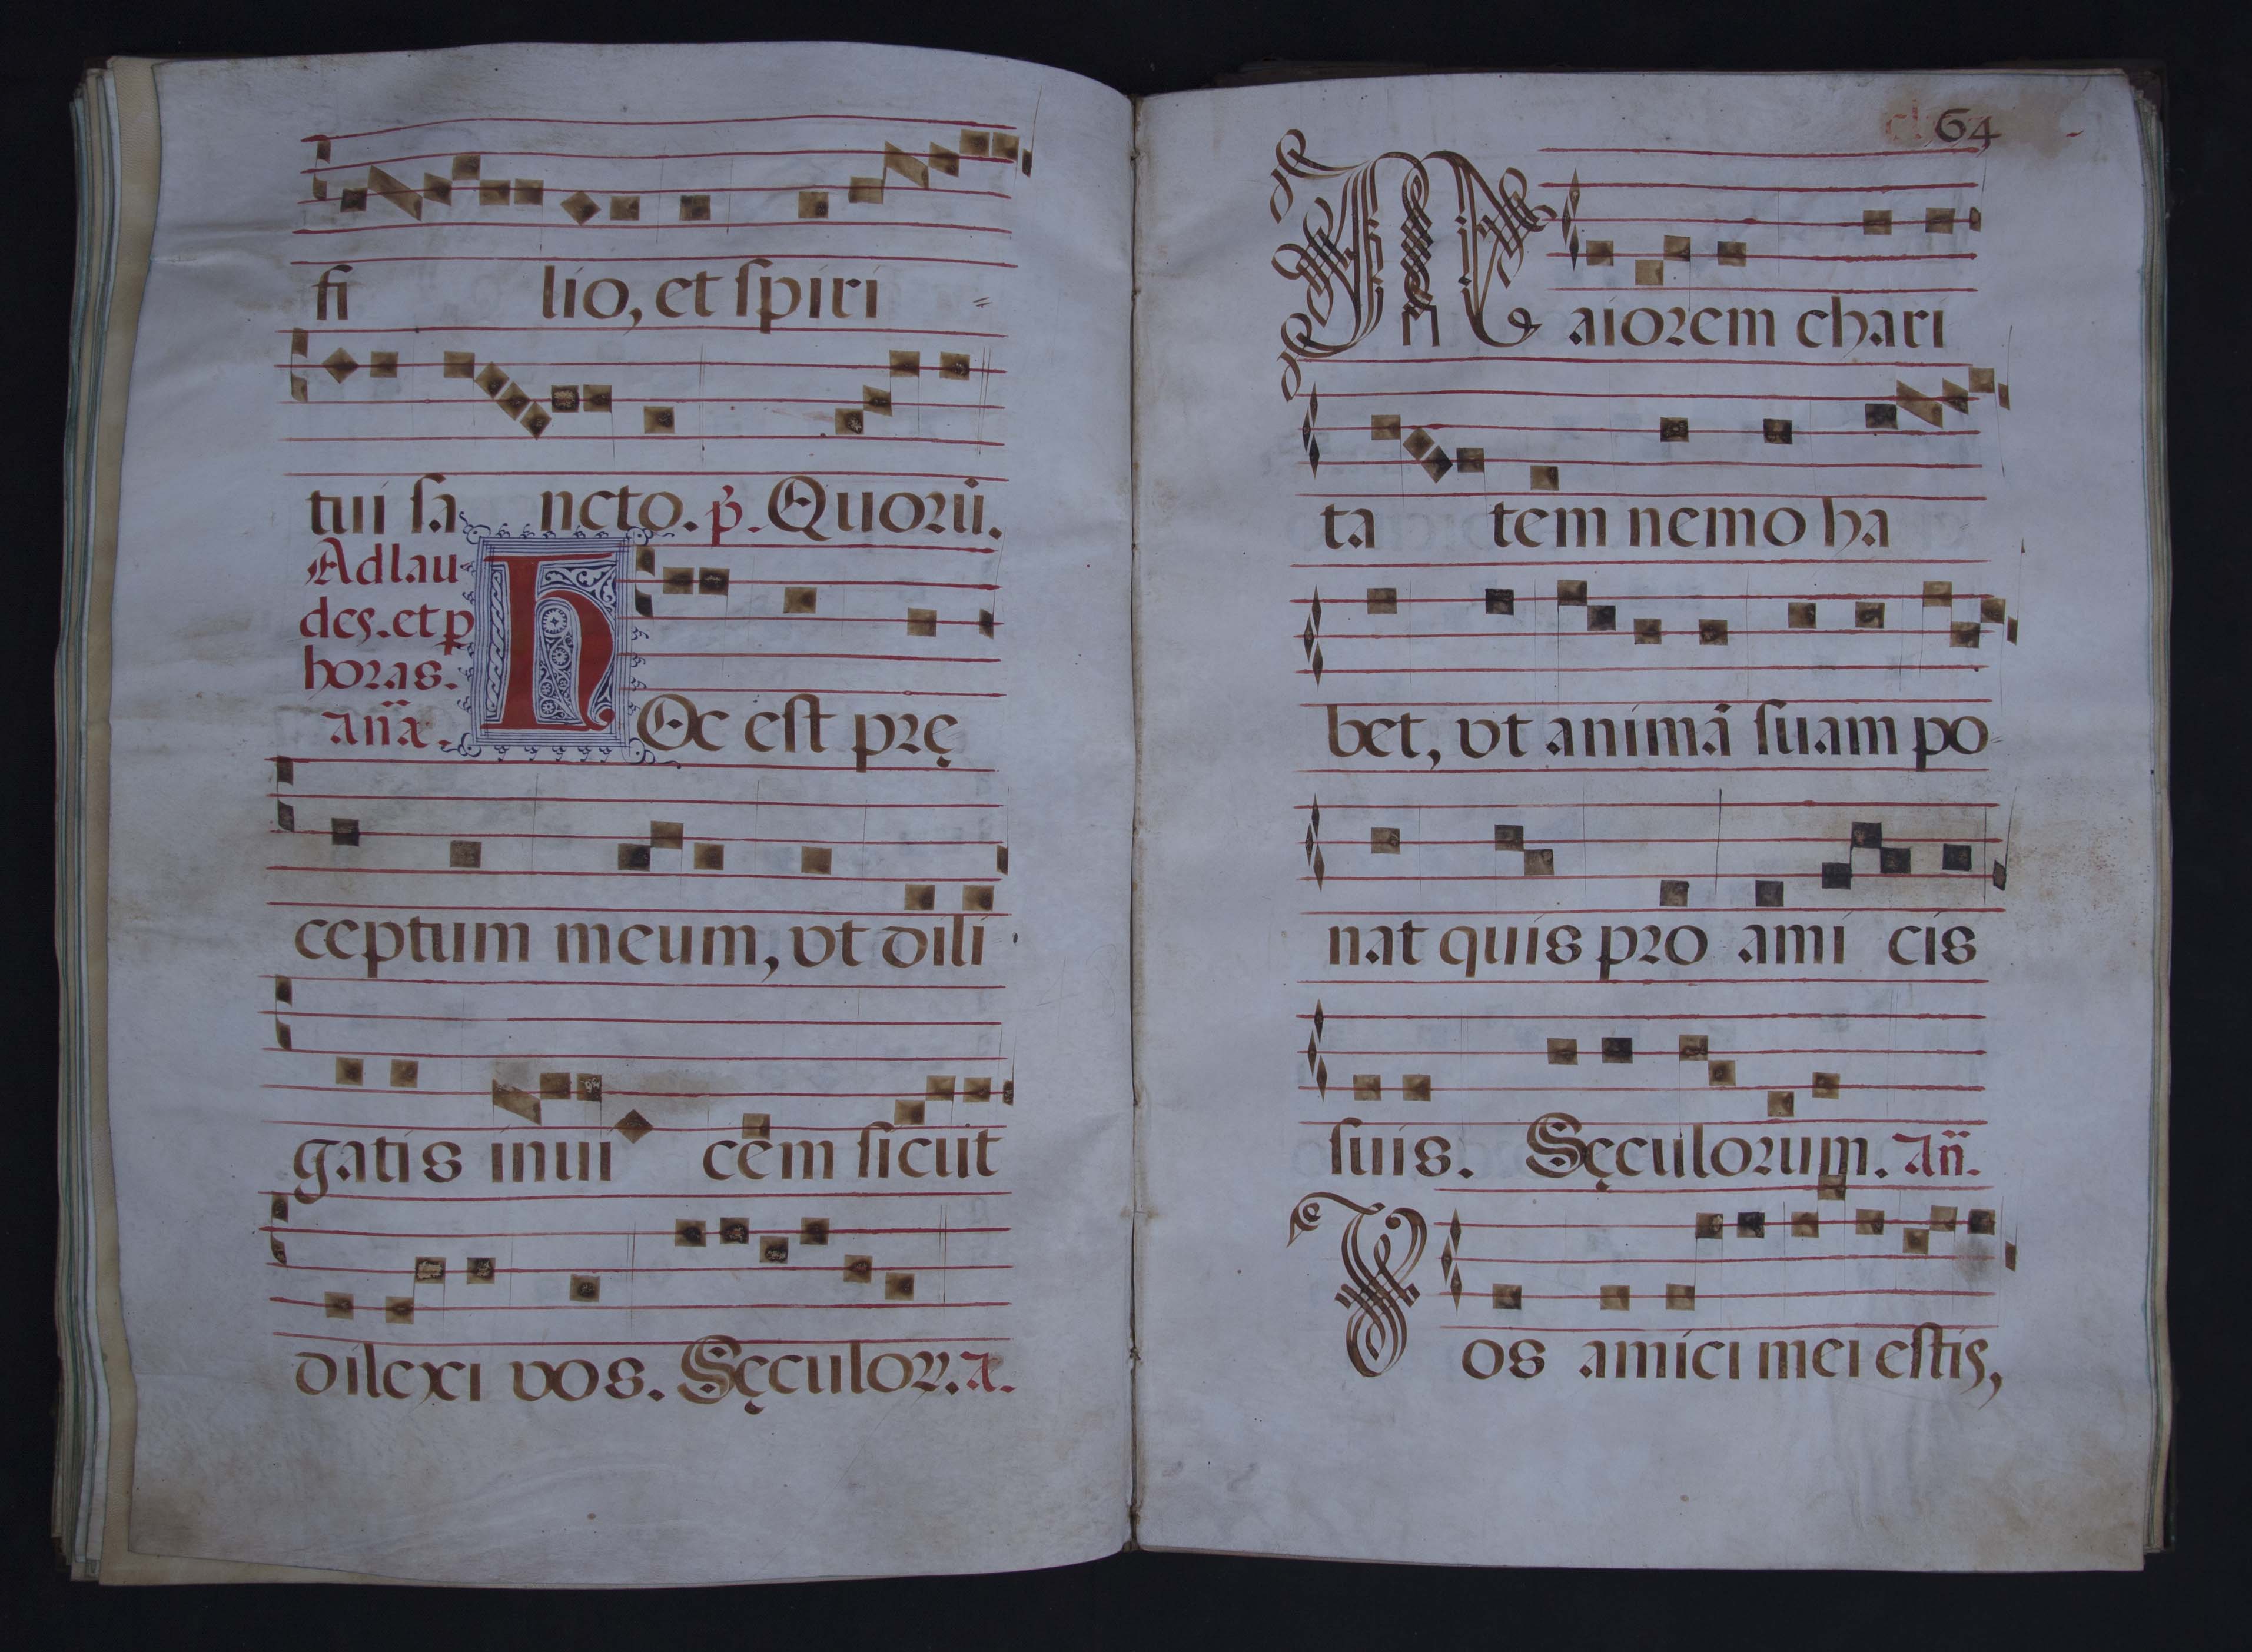 fi lio, et spiri =
tui sa ncto. p̃. Quorũ.
Ad lau
des. et p
horas.
añа.
h Oc est prę
ceptum meum, vt dili
gatis inui cem sicut
dilexi vos. Sęculoꝝ. a.
64
M aiorem chari
ta tem nemo ha
bet, vt animã suam po=
nat quis pro ami cis
suis. Sęculorum. añ.
V os amici mei estis,